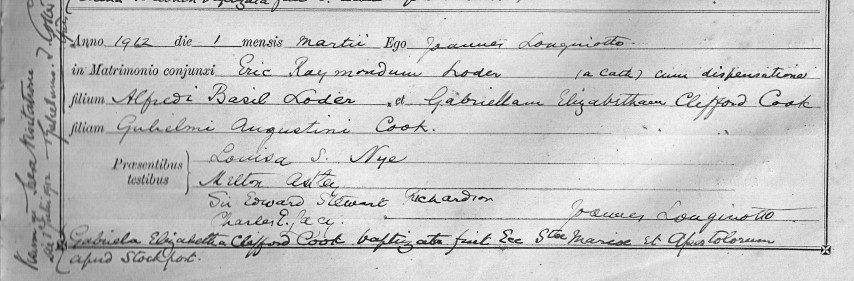 Anno 1962 die 1 mensis Martii Ego Joannes Longinotto
in Matrimonio conjunxi Eric Raymondum Loder (a Cath) cum dispensatione
filium Alfredi Basil Loder et Gabriellam Elizabetham Clifford Cook
filiam Gulielmi Augustini Cook.
Præsentibus testibus
Louisa S. Nye
Milton
Sir Edward Stewart Richardson
Charles E.
Joannes Longinotto
Gabriela Elizabetha Clifford Cook baptizata fuit Ecc Stae Mariae et Apostolorum
apud Stockport.